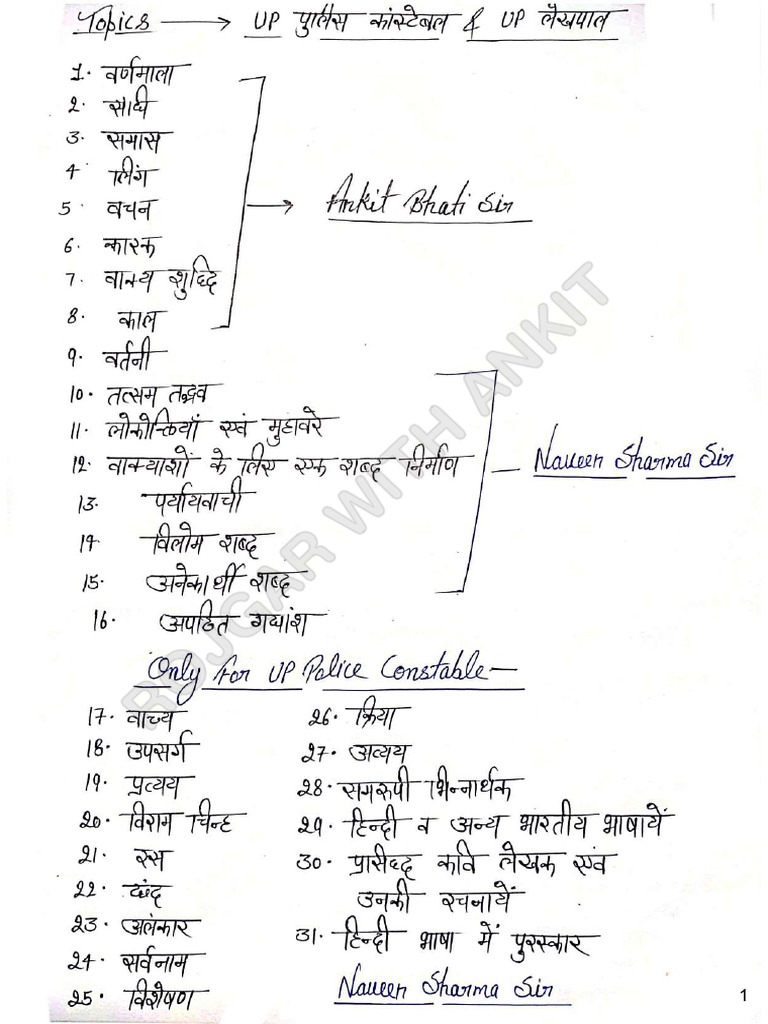 Topics → UP पुलिस कांस्टेबल & UP लेखपाल
1. वर्णमाला
2. संधि
3. समास
4 लिंग
5. वचन
6. कारक
7. वाक्य शुद्धि
8. काल
→ Ankit Bhati Sir
9. वर्तनी
10. तत्सम तद्भव
11. लोकोक्तियाँ एवं मुहावरे
12. वाक्याशों के लिए एक शब्द निर्माण
13. पर्यायवाची
14 विलोम शब्द
15. अनेकार्थी शब्द
16. अपठित गद्यांश
– Naveen Sharma Sir
Only For UP Police Constable –
17. वाच्य
18. उपसर्ग
19. प्रत्यय
20. विराम चिन्ह
21. रस
22. छंद
23. अलंकार
24. सर्वनाम
25. विशेषण
26. क्रिया
27. अव्यय
28. समरुपी भिन्नार्थक
29. हिन्दी व अन्य भारतीय भाषायें
30. प्रसिद्ध कवि लेखक एंव
उनकी रचनायें
31. हिन्दी भाषा में पुरस्कार
Naveen Sharma Sir
ROJGAR WITH ANKIT
1